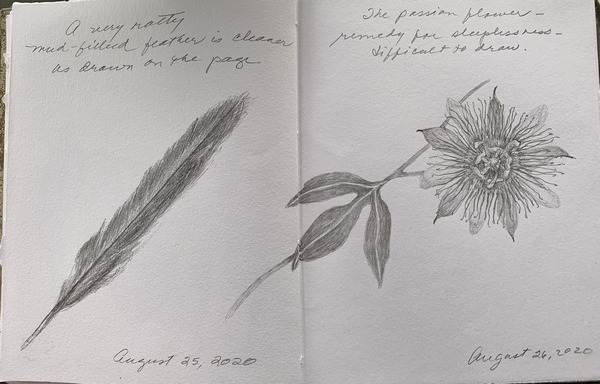 A very ratty
mud-filled feather is cleaner
as drawn on the page
August 25, 2020
The passion flower -
remedy for sleeplessness -
difficult to draw.
August 26, 2020